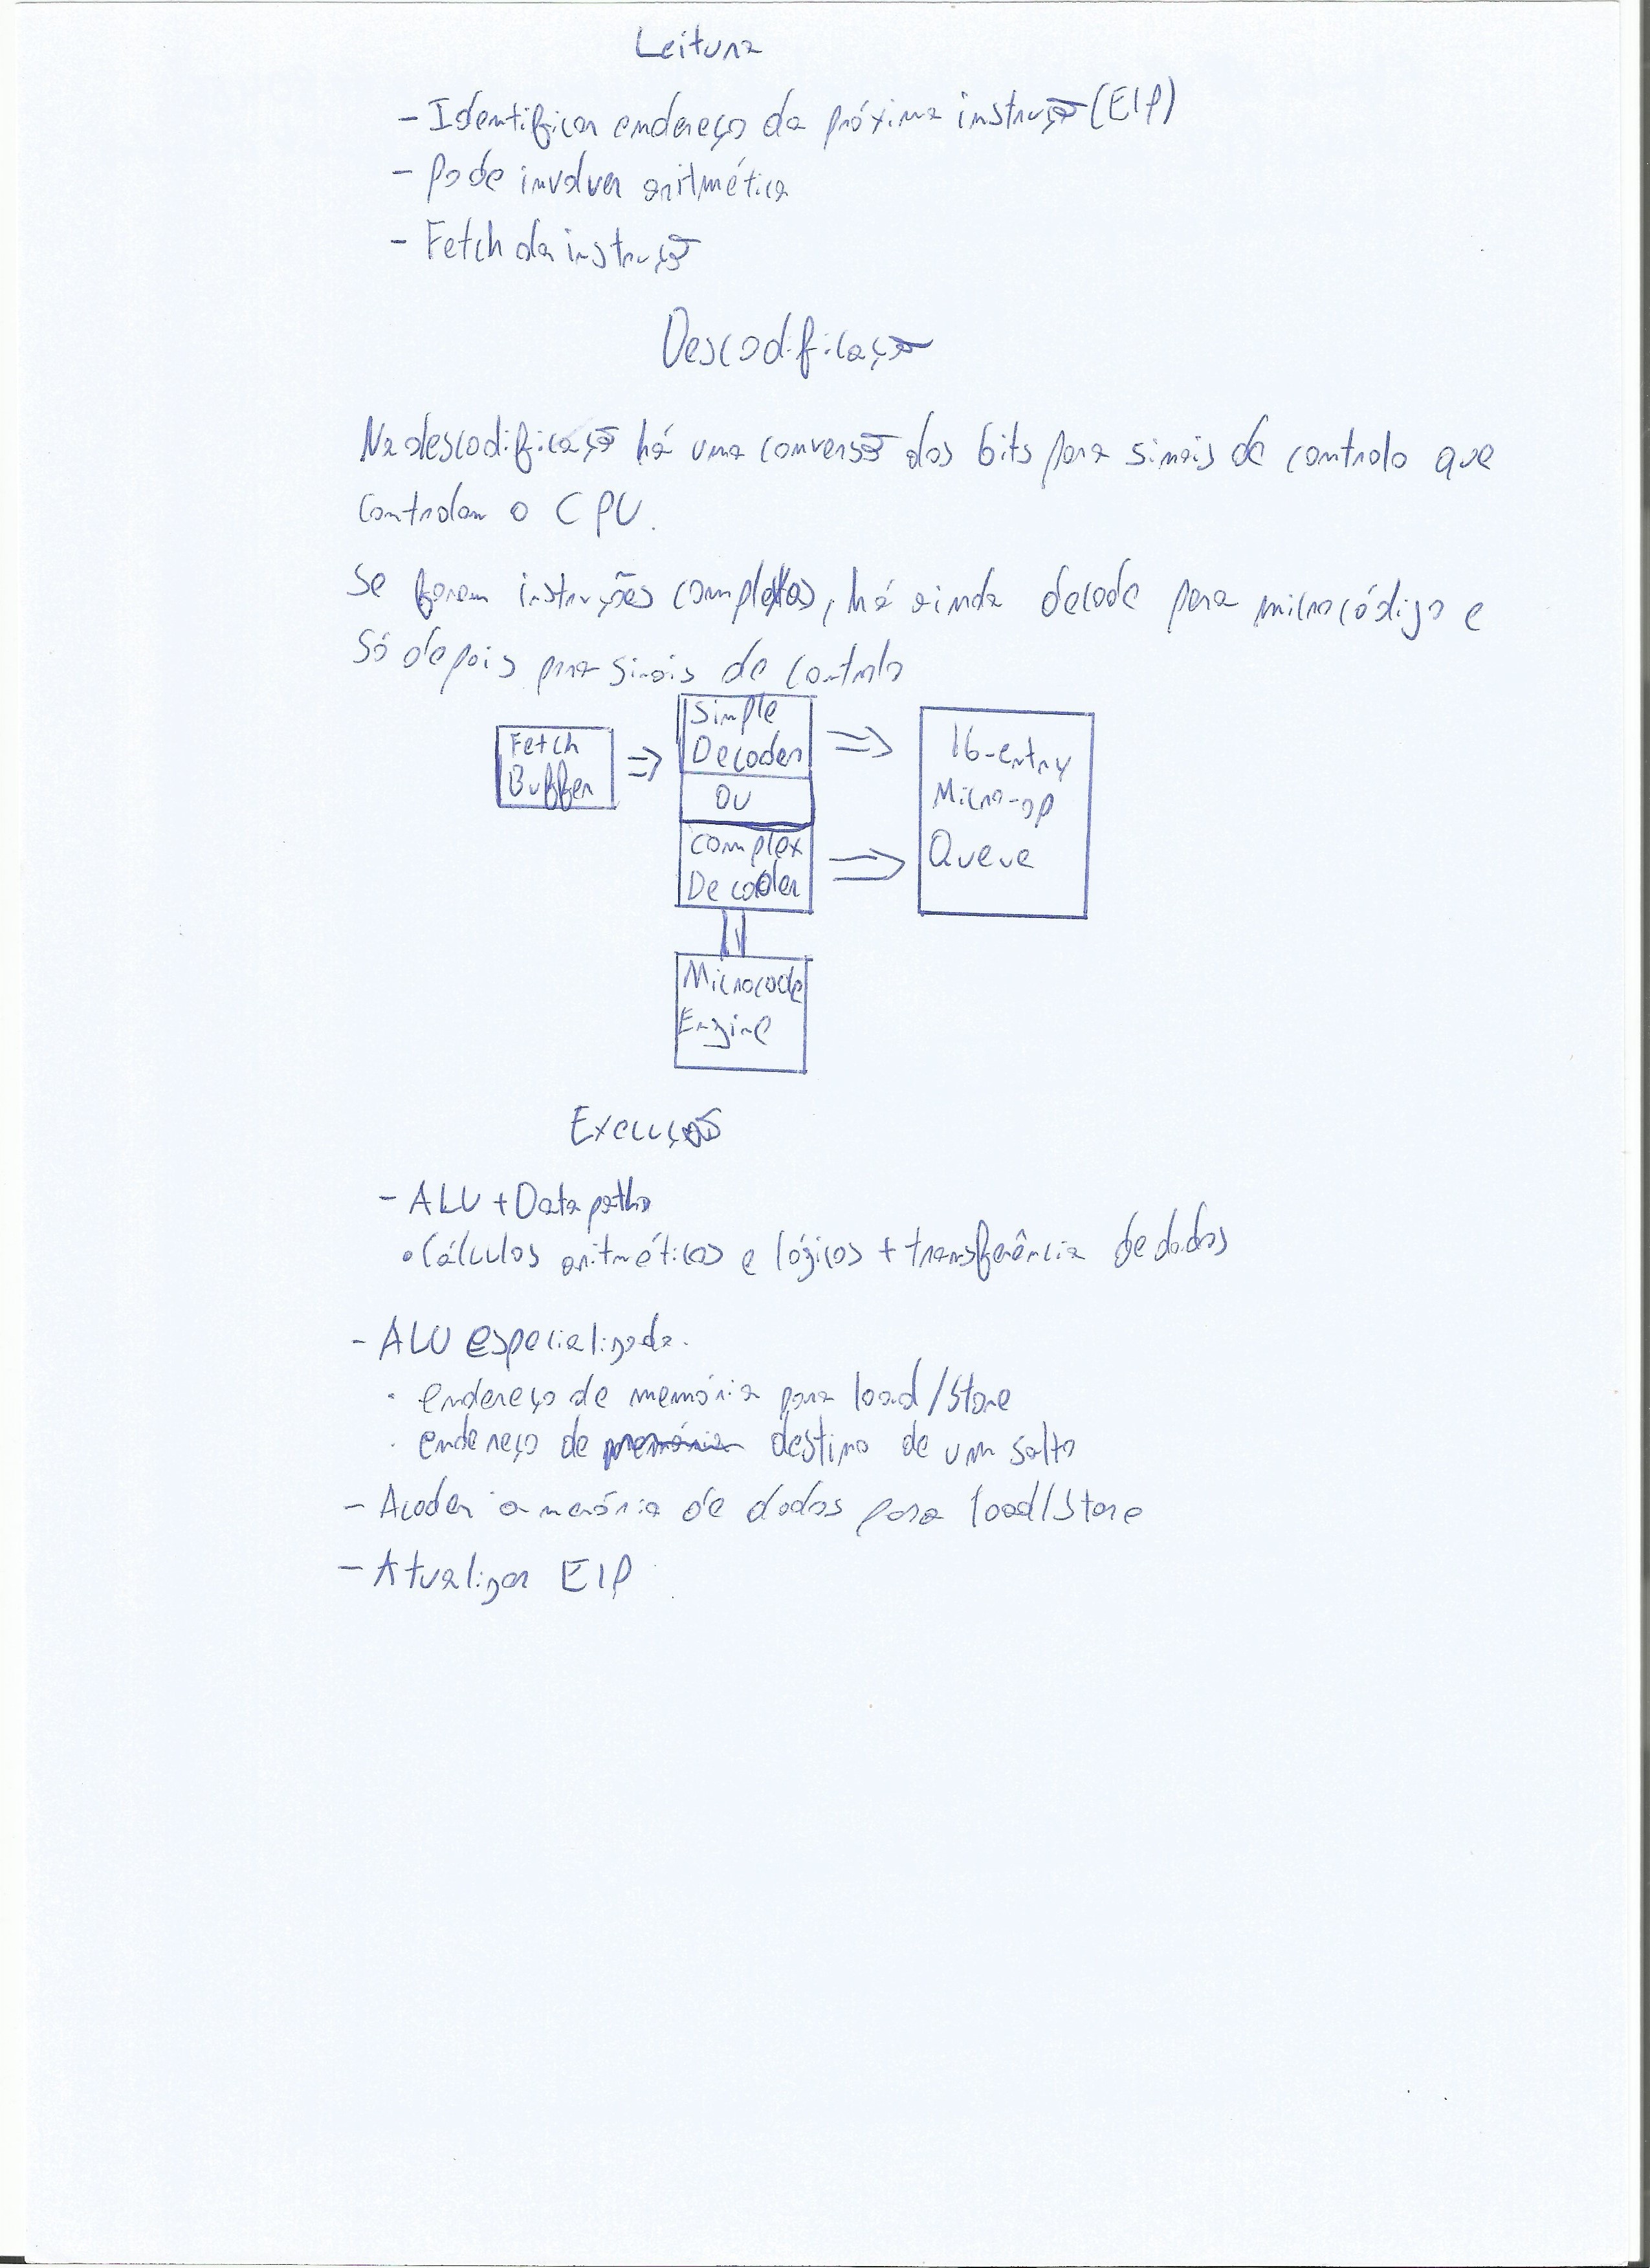 Leitura
- Identificar endereço da próxima instrução (EIP)
- Pode involver aritmética
- Fetch da instrução
Descodificação
Na descodificação há uma conversão dos bits para sinais de controlo que
controlam o CPU.
Se forem instruções complexas, há ainda decode para microcódigo e
só depois para sinais de controlo
Fetch
Buffer
Simple
Decoder
OU
Complex
Decoder
16-entry
Micro-op
Queue
Microcode
Engine
Execução
- ALU + Datapath
• Cálculos aritméticos e lógicos + transferência de dados
- ALU especializada.
· endereço de memória para load/store
· endereço de memória destino de um salto
- Aceder a memória de dados para load/store
- Atualizar EIP